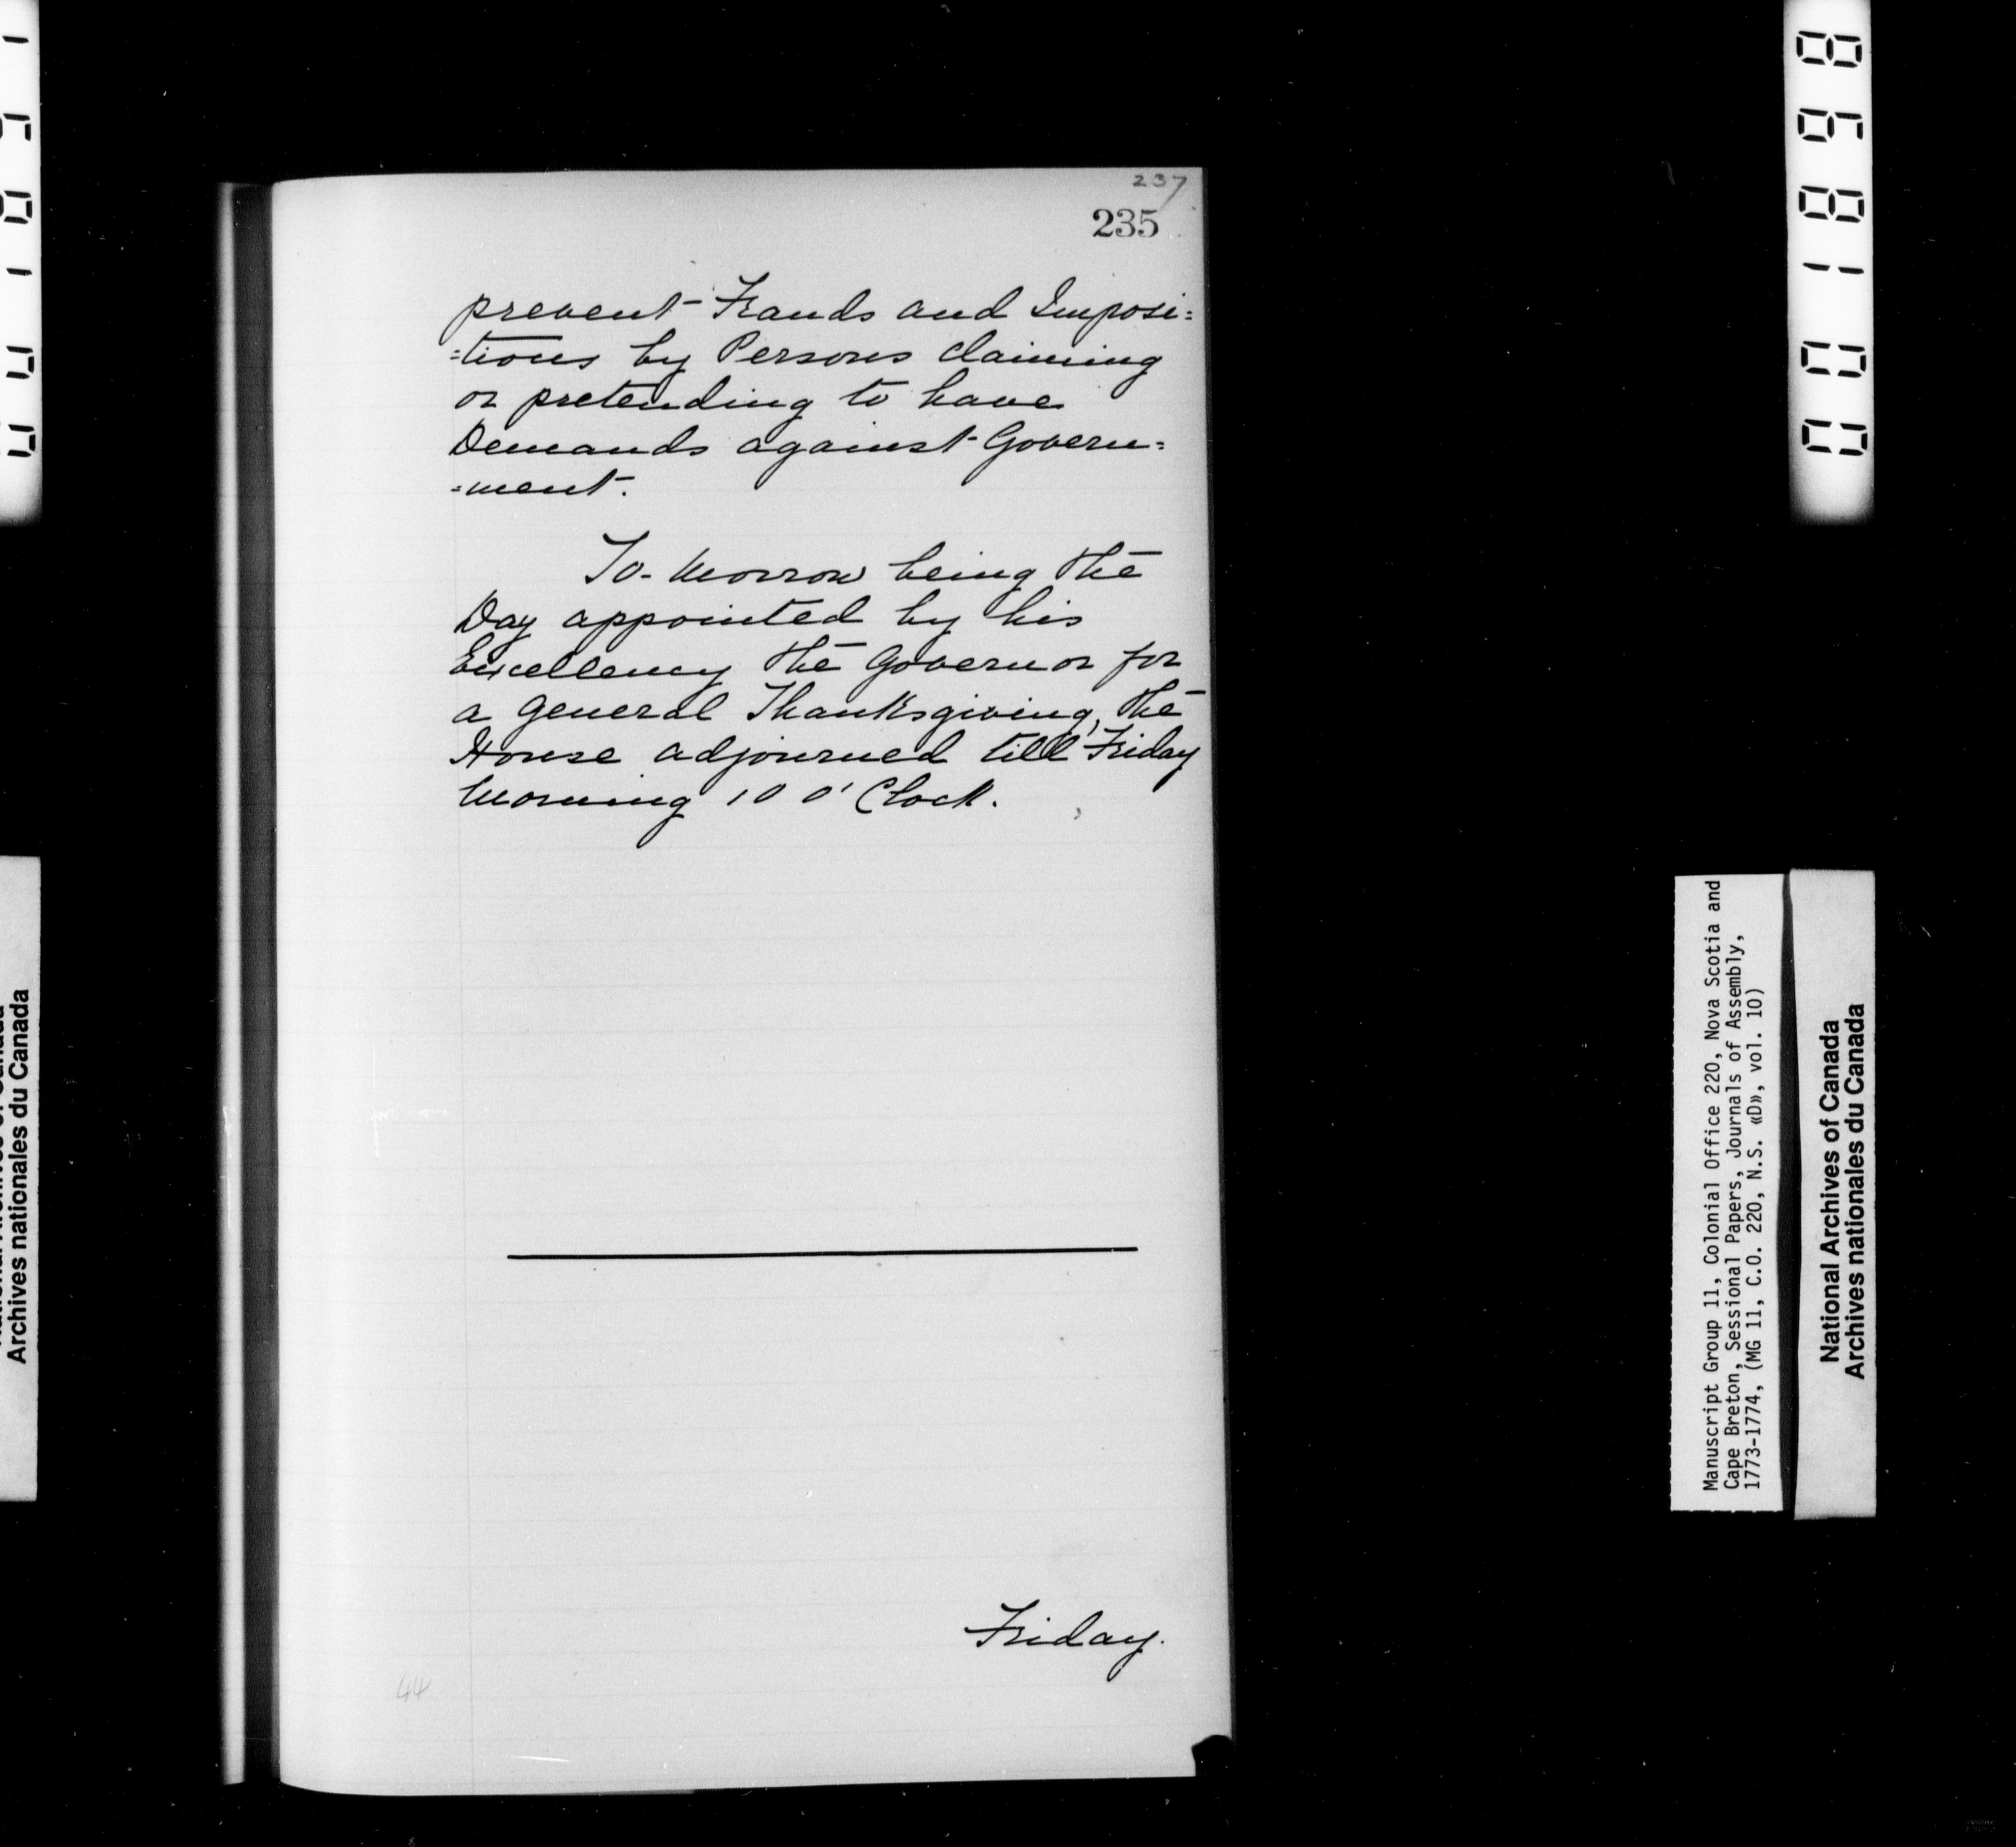 237
235
prevent Frauds and Imposi=
=tions by Persons claiming
or pretending to have
Demands against Govern=
=ment.
To-Morrow being the
Day appointed by his
Excellency the Governor for
a General Thanksgiving, the
House adjourned till Friday
Morning 10 O'Clock.
Friday.
44
001898
Manuscript Group 11, Colonial Office 220, Nova Scotia and
Cape Breton, Sessional Papers, Journals of Assembly,
1773-1774, (MG 11, C.O. 220, N.S. «D», vol. 10)
National Archives of Canada
Archives nationales du Canada
Archives nationales du Canada